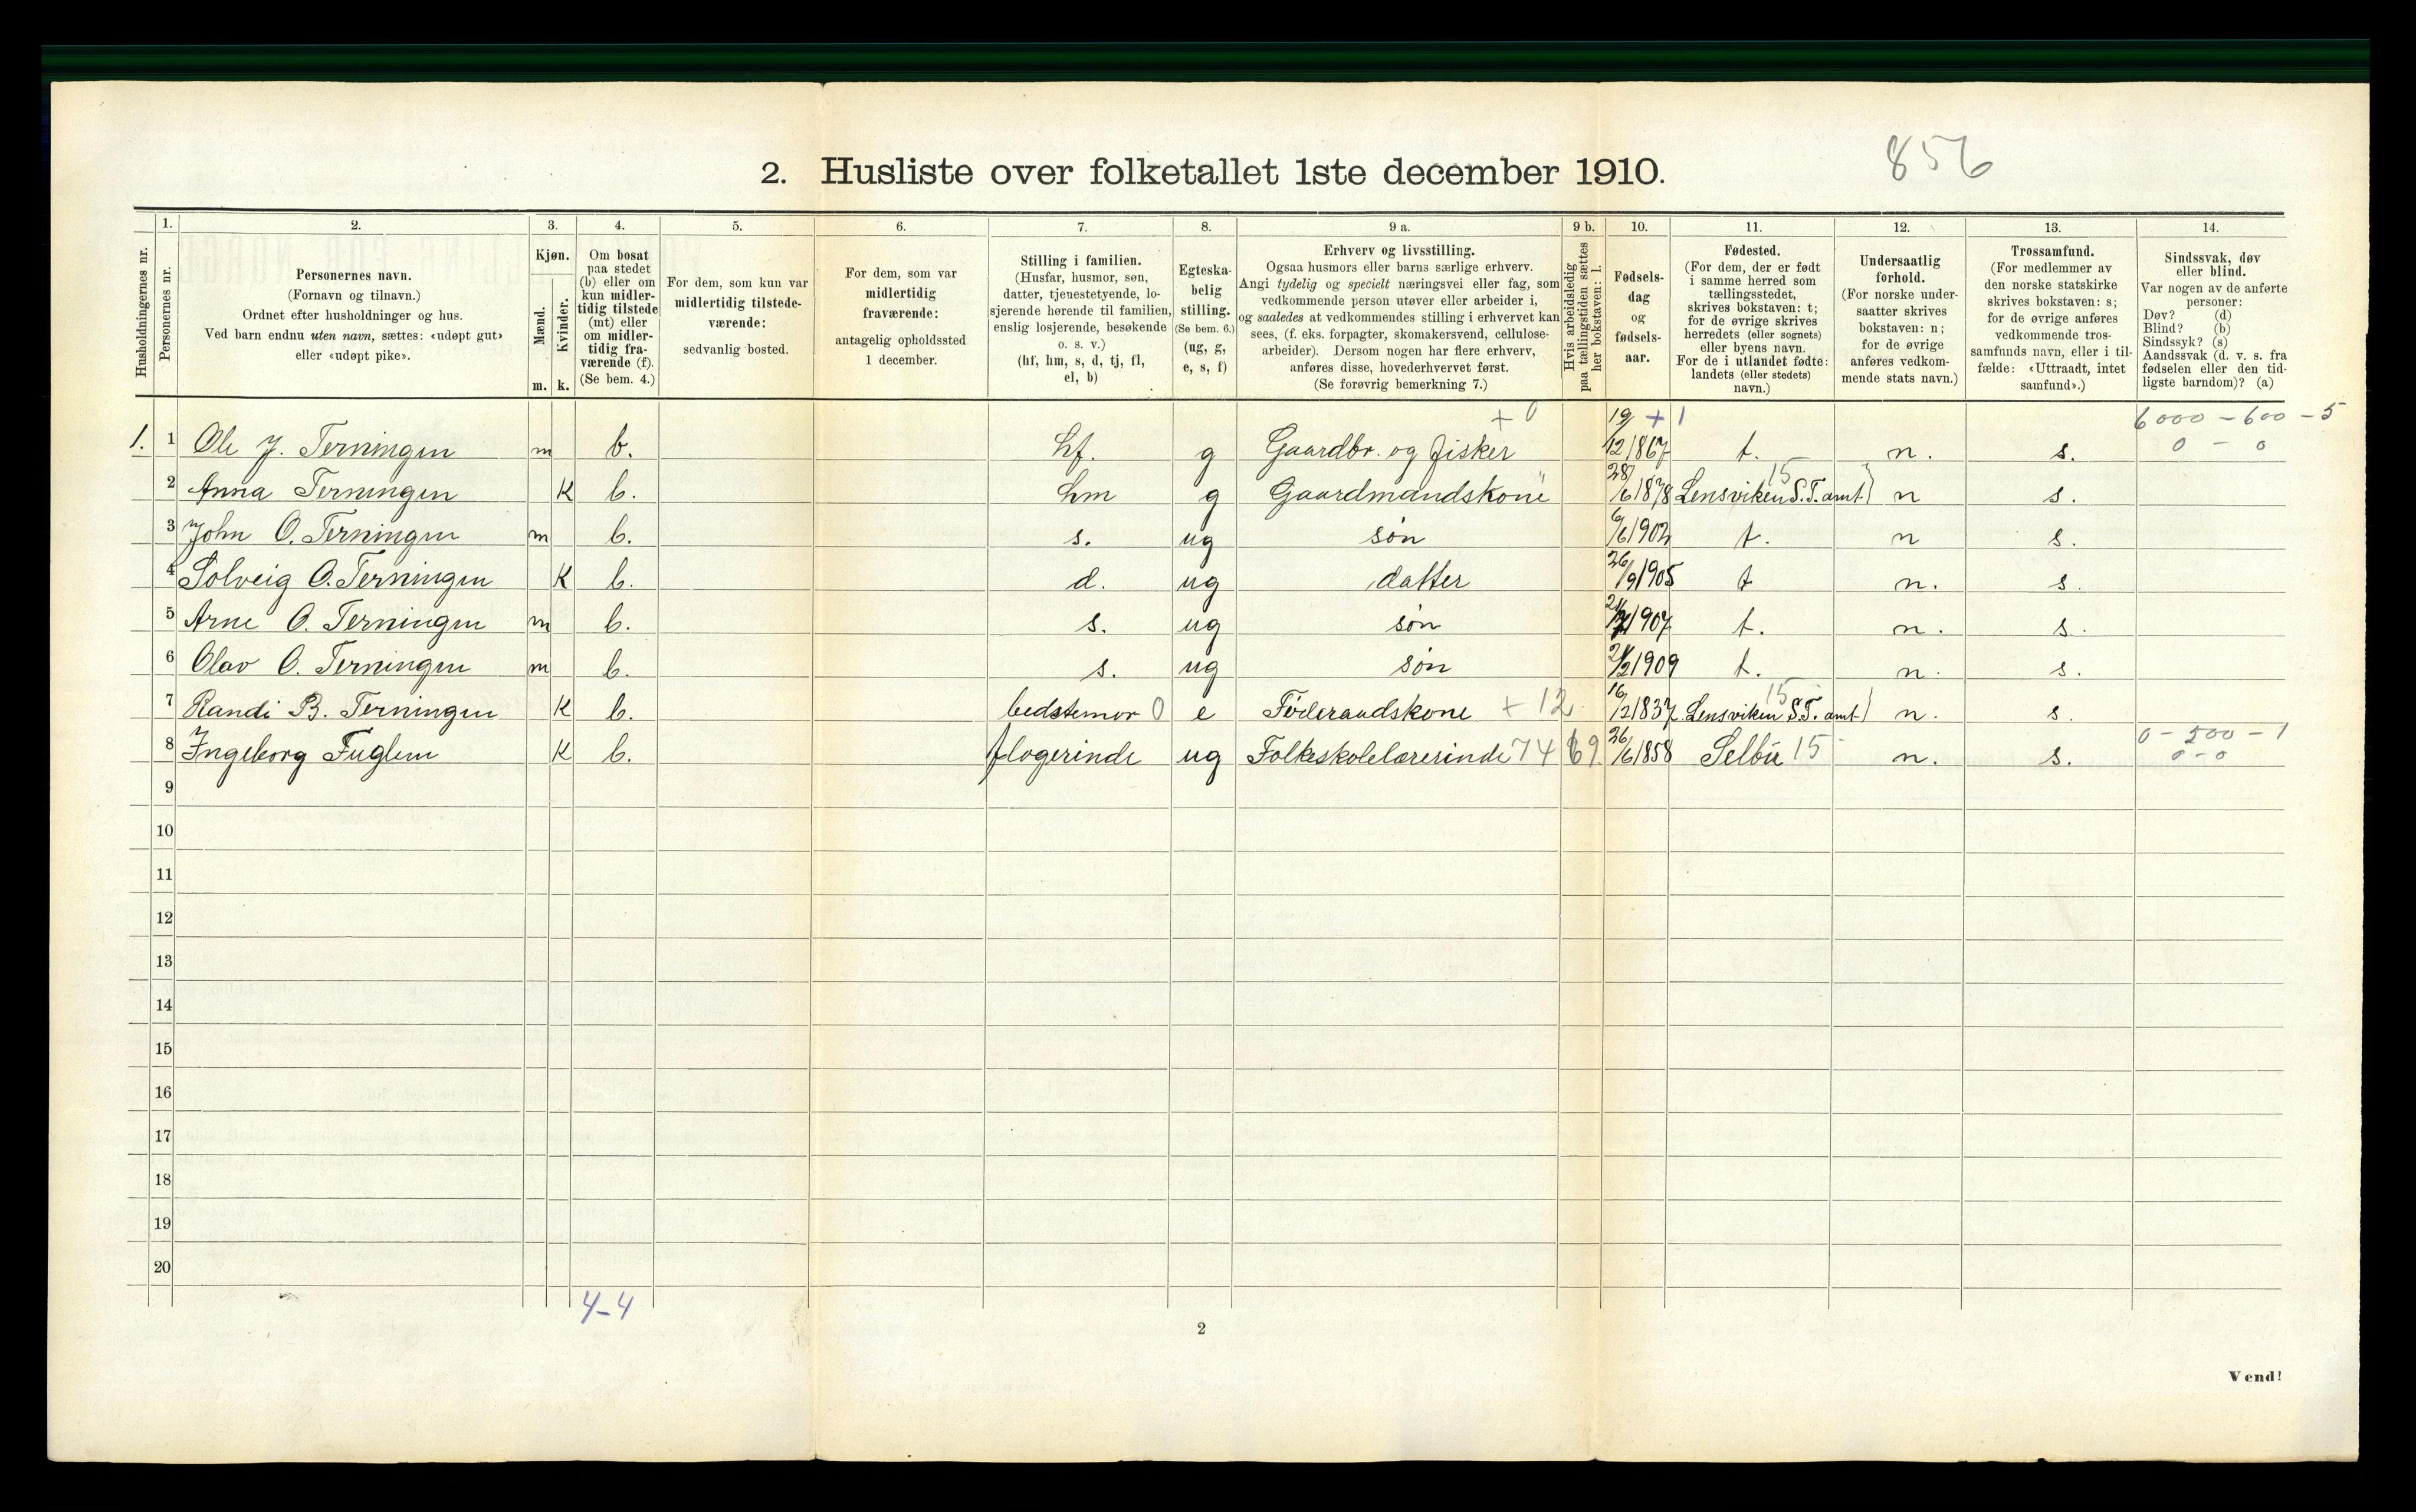 856
2. Husliste over folketallet 1ste december 1910.
Husholdningernes nr.
1.
Personernes nr.
2.
Personernes navn.
(Fornavn og tilnavn.)
Ordnet efter husholdninger og hus.
Ved barn endnu uten navn, sættes: «udøpt gut»
eller «udøpt pike».
3.
Kjøn.
Mænd.
Kvinder.
m. k.
4.
Om bosat
paa stedet
(b) eller om
kun midler-
tidig tilstede
(mt) eller
om midler-
tidig fra-
værende (f).
(Se bem. 4.)
5.
For dem, som kun var
midlertidig tilstede-
værende:
sedvanlig bosted.
6.
For dem, som var
midlertidig
fraværende:
antagelig opholdssted
1 december.
7.
Stilling i familien.
(Husfar, husmor, søn,
datter, tjenestetyende, lo-
sjerende hørende til familien,
enslig losjerende, besøkende
o. s. v.)
(hf, hm, s, d, tj, fl,
el, b)
8.
Egteska-
belig
stilling.
(Se bem. 6.)
(ug, g,
e, s, f)
9 a.
Erhverv og livsstilling.
Ogsaa husmors eller barns særlige erhverv.
Angi tydelig og specielt næringsvei eller fag, som
vedkommende person utøver eller arbeider i,
og saaledes at vedkommendes stilling i erhvervet kan
sees, (f. eks. forpagter, skomakersvend, cellulose-
arbeider). Dersom nogen har flere erhverv,
anføres disse, hovederhvervet først.
(Se forøvrig bemerkning 7.)
9 b.
Hvis arbeidsledig
paa tællingstiden sættes
her bokstaven: l.
10.
Fødsels-
dag
og
fødsels-
aar.
11.
Fødested.
(For dem, der er født
i samme herred som
tællingsstedet,
skrives bokstaven: t;
for de øvrige skrives
herredets (eller sognets)
eller byens navn.
For de i utlandet fødte:
landets (eller stedets)
navn.)
12.
Undersaatlig
forhold.
(For norske under-
saatter skrives
bokstaven: n;
for de øvrige
anføres vedkom-
mende stats navn.)
13.
Trossamfund.
(For medlemmer av
den norske statskirke
skrives bokstaven: s;
for de øvrige anføres
vedkommende tros-
samfunds navn, eller i til-
fælde: «Uttraadt, intet
samfund».)
14.
Sindssvak, døv
eller blind.
Var nogen av de anførte
personer:
Døv? (d)
Blind? (b)
Sindssyk? (s)
Aandssvak (d. v. s. fra
fødselen eller den tid-
ligste barndom)? (a)
+ 0 + 1 6000 - 600 - 5
1. 1 Ole J. Terningen m b. hf. g Gaardbr. og fisker 19/12 1867 t. n. s. 0 - 0
2 Anna Terningen K b. hm g Gaardmandskone 28/6 1878 Lensviken S.T. amt 15 n s.
3 John O. Terningen m b. s. ug søn 6/6 1902 t. n s.
4 Solveig O. Terningen K b. d. ug datter 26/9 1905 t n. s.
5 Arne O. Terningen m b. s. ug søn 1907 t. n. s.
6 Olav O. Terningen m b. s. ug søn 1909 t. n. s.
7 Randi B. Terningen K b. bedstemor 0 e Føderaadskone + 12 16/12 1837 Lensviken S.T. amt 15 n. s.
0 - 500 - 1
8 Ingeborg Fuglem K b. logerinde ug Folkeskolelærerinde 74 69 26/6 1858 Selbu 15 n. s. 0 - 0
9
10
11
12
13
14
15
16
17
18
19
20
4-4
2
Vend!